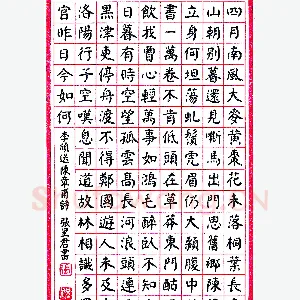 四月南風大麥黃棗花未落桐葉長
山朝別暮還見嘶馬出門思舊鄉陳
立身何坦蕩虬鬚虎眉仍大顙腹中
書一萬卷不肯低頭在草莽東門酤
飲我曹心輕萬事如鴻毛醉臥不知
日暮有時空望孤雲高長河浪頭連
黑津口停舟渡不得鄭國遊人未及
洛陽行子空嘆息聞道故林相識多
宮昨日今如何
李頎送陳章甫詩 張里君書